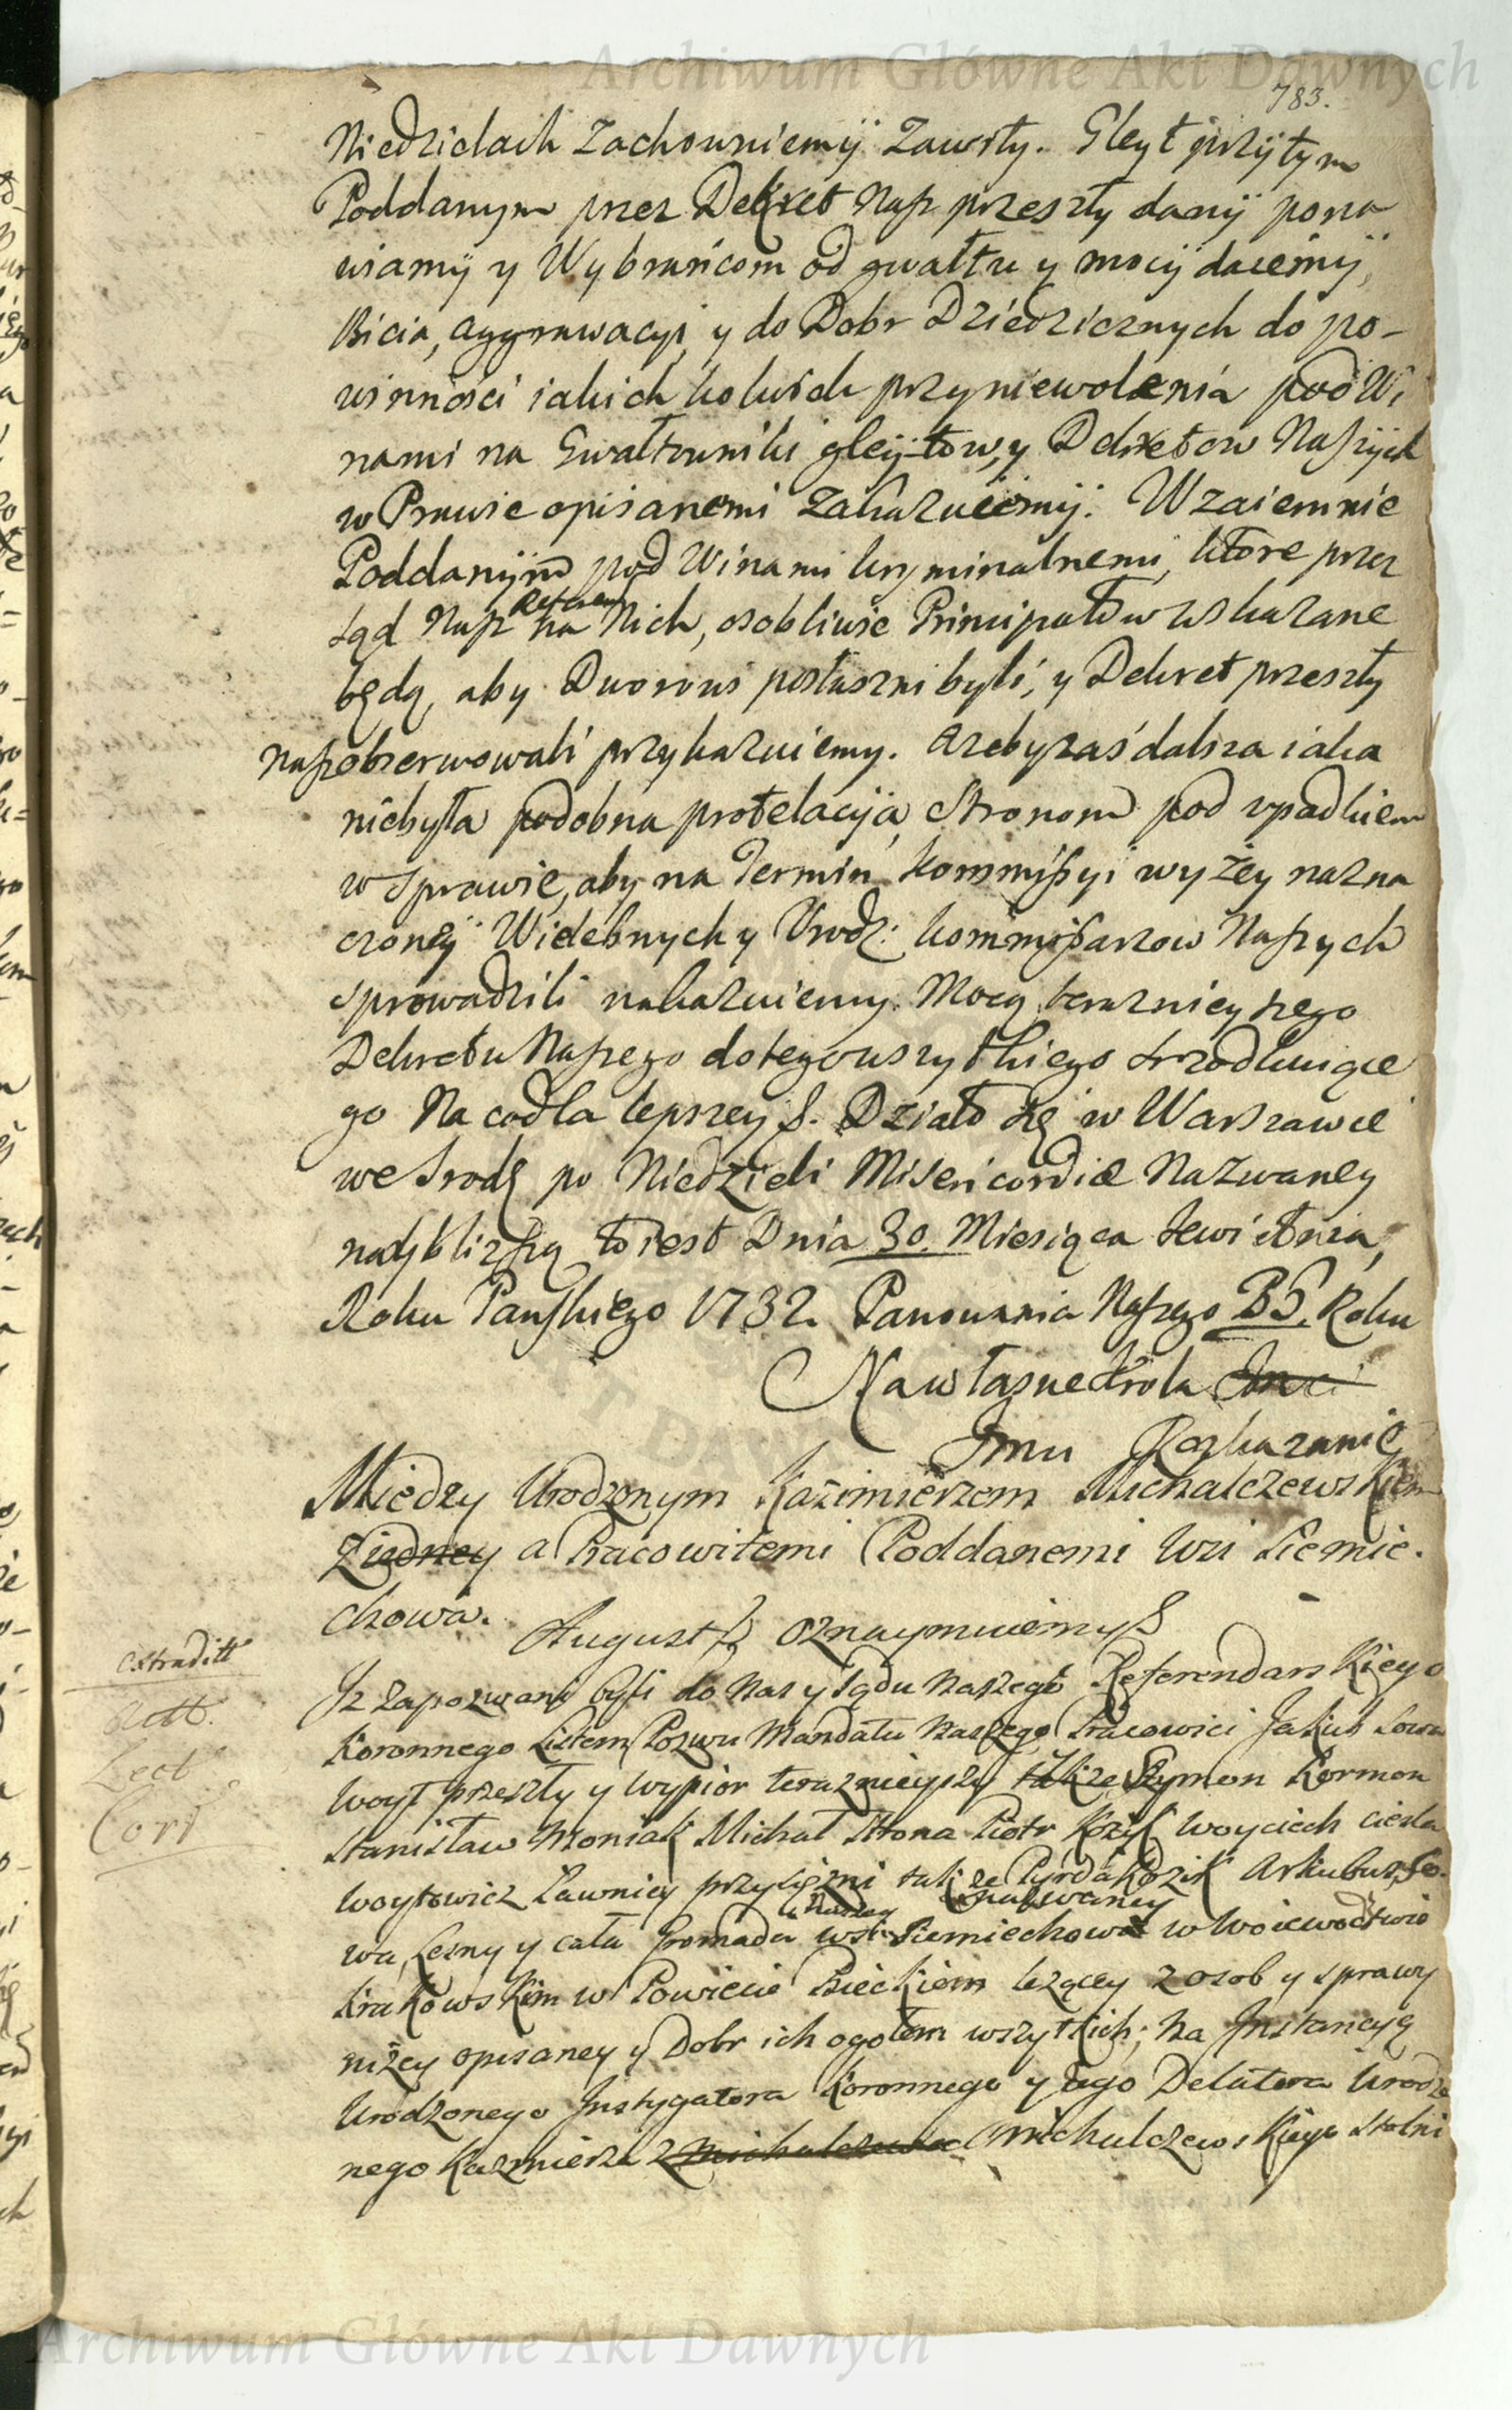 Archiwum Główne Akt Dawnych
783.
Niedzielach zachowuiemÿ zawsty. Gleyt przÿ tym
Poddanym przez Dekret Nasz przeszły danÿ pona
wiamÿ y Wybrańcom od gwałtu y mocÿ daiemÿ,
Bicia, aggrawacyi, y do Dobr Dziedzicznych do po-
winności iakich kolwiek przyniewolenia pod Wi
nami na Gwałtowniki gleÿtow, y Dekretow Naszÿch
w Prawie opisanemi zakazuiemÿ. Wzaiemnie
Poddanÿm pod Winami kryminalnemi, ktore przez
Sąd Nasz Referen na Nich, osobliwie Principałow wskazane
będą, aby Dworowi posłuszni byli, y Dekret przeszły
Nasz obserwowali przykazuiemy. Azeby zaś dalsza iaka
niebyła podobna protelacÿia, Stronom pod upadkiem
w sprawie, aby na Termin Kommissyi wyżey nazna
czonéÿ Wielebnych y Urodz: kommissarzow Naszych
sprowadzili nakazuiemy. Mocą teraznieyszego
Dekretu Naszego do tego wszytkiego srzodkuiące
go Na co dla lepszey S. Działo się w Warszawie
we Srodę po Niedzieli Misericordiae Nazwaney
naÿbliższą to iest Dnia 30. Miesiąca Kwietnia,
Roku Pańskiego 1732. Panowania Naszego 35. Roku
Na własne Krola Jmci
Jmci Rozkazanie
Miedzy Urodzonym Kazimierzem Michalczewskiem
Ziedney a Pracowitemi Poddanemi Wsi Siemie-
chowa.
August S oznaymuiemy S
extradit
Iż zapozwani byli do Nas y Sądu Naszego Referendarskiego
Actt.
Koronnego Listem Pozwu Mandatu Naszego Pracowici Jakub Sowa
Lect
Woyt przeszły y Wypior teraznieyszy także Szymon Kormon
Corr
Stanisław Moniak Michał Słona Piotr Kozik Woyciech Ciesla
Woytowicz Ławnicy przysiężni także Pyrda Kozik Arkabus, So-
wa, Lesny y cała Gromada Naszey wsi Siemiechowa nazwaney w Woiewodztwie
Krakowskim w Powiecie Bieckiem lezącey z osob y sprawy
niżey opisaney y Dobr ich ogołem wszytkich; Na Instancyą
Urodzonego Instygatora Koronnego y Jego Delatora Urodzo
nego Kazmierza z Michalczewa Michalczewskiego Stolni
Archiwum Główne Akt Dawnych